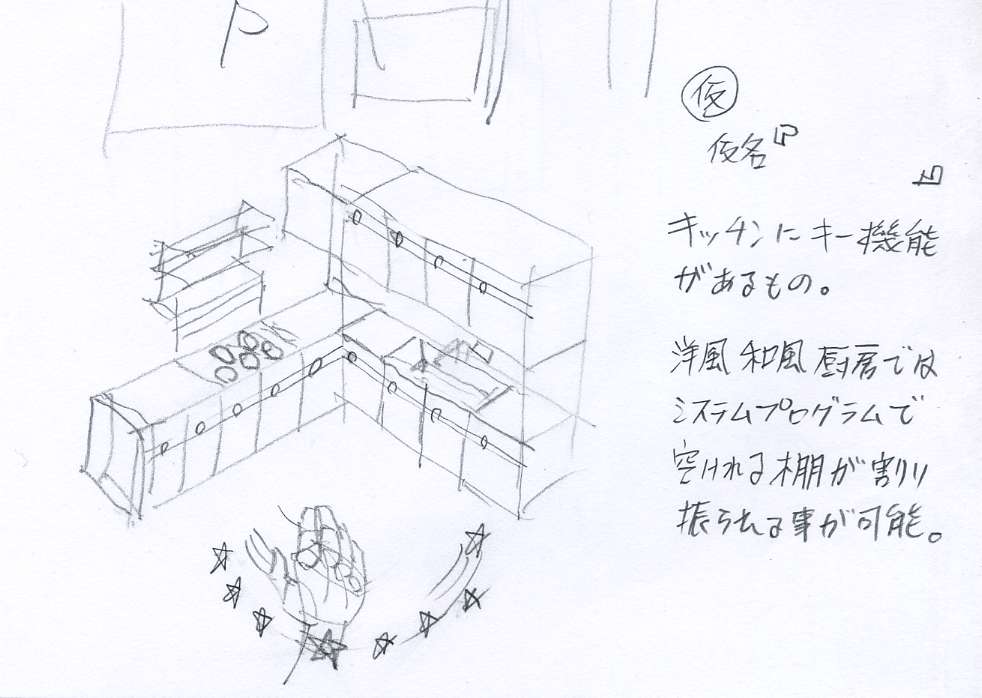 P
仮
仮名「
」
キッチンにキー機能
があるもの。
洋風 和風 厨房では
システムプログラムで
空けれる棚が割り
振られる事が可能。